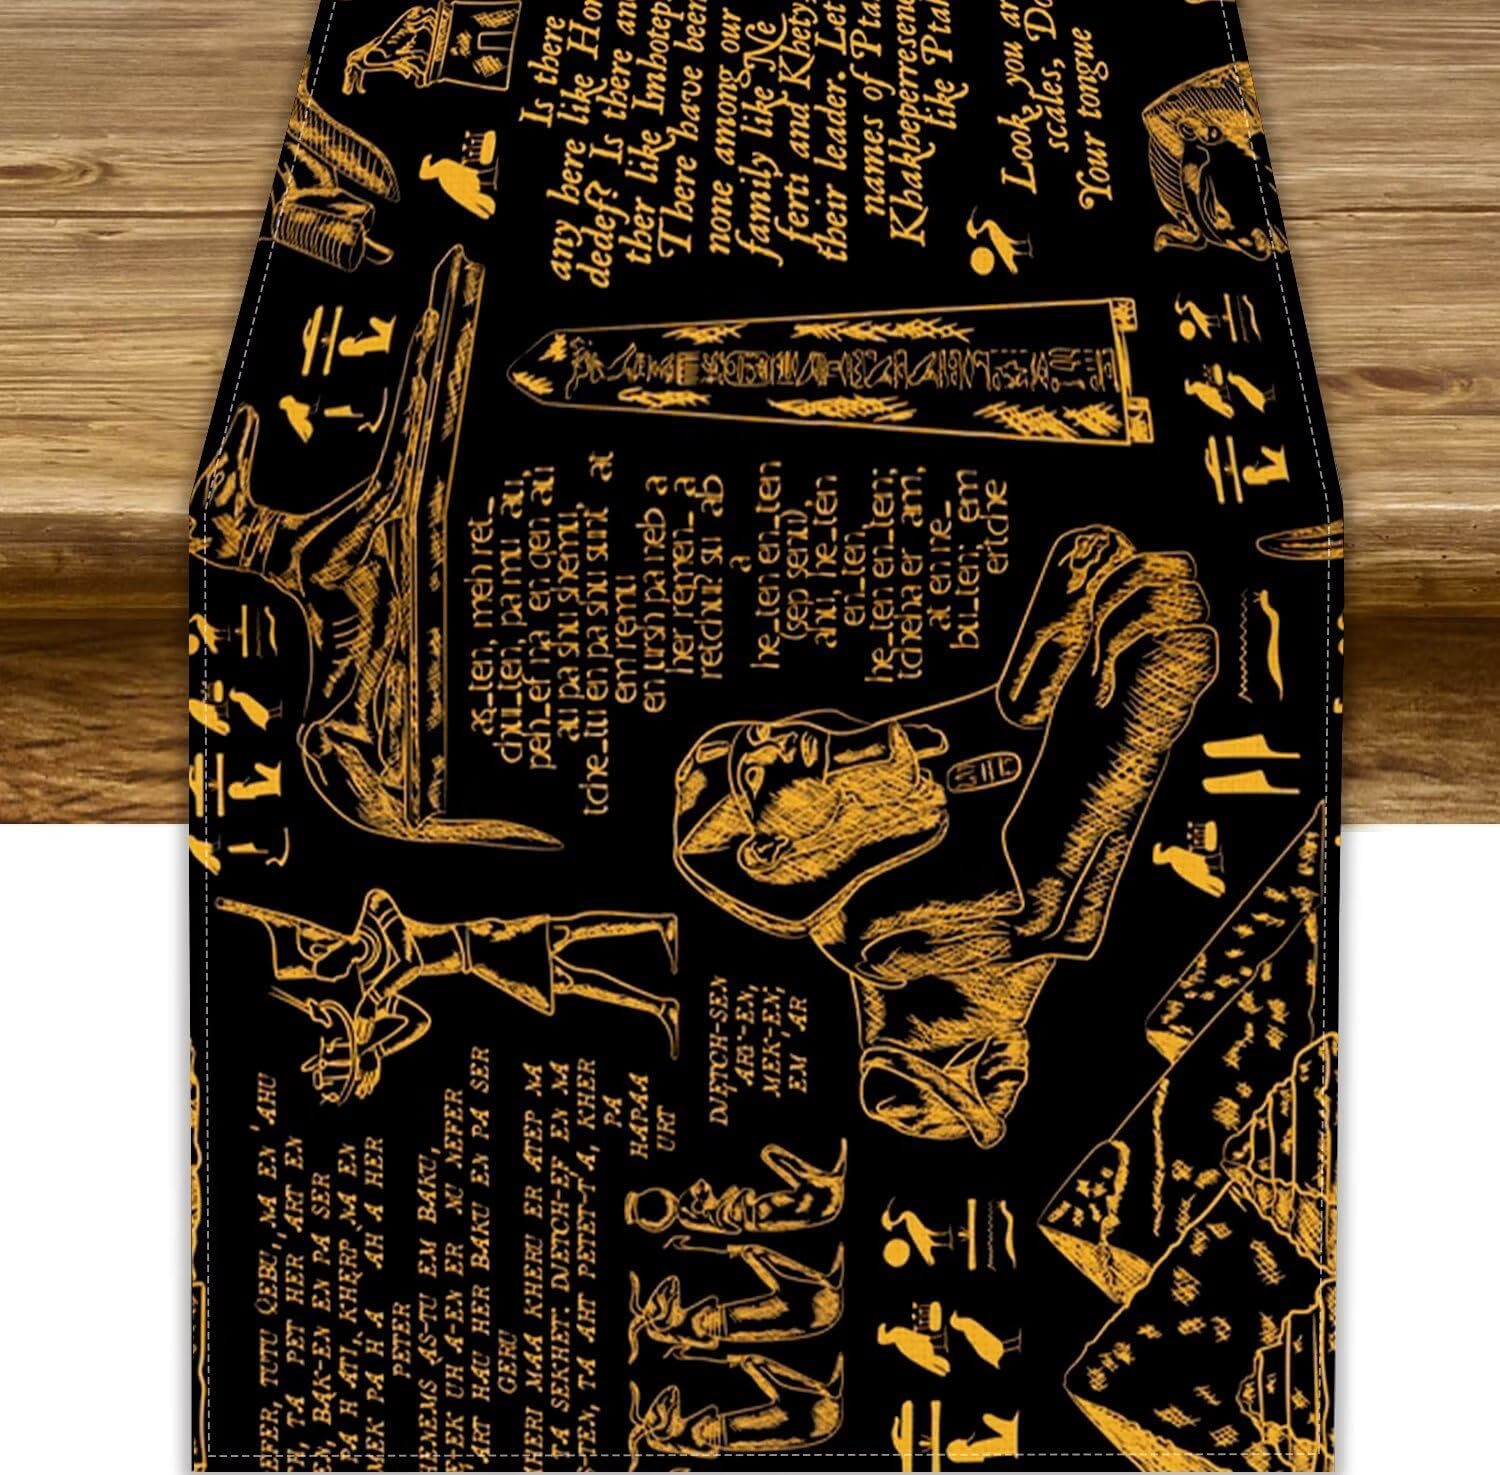 Is there
any here like Hor
dedef? Is there ano
ther like Imhotep?
There have been
none among our
family like Ne
ferti and Khety,
their leader. Let
names of Ptah
Khakheperreseneb
like Ptah
Look, you are
scales, Do
Your tongue
as_ten, meh ret_
chu_ten, pa mu au,
peh_ef na en qen au
au pa shu shemu,
tche_tu en pa shu sunt, at
em remu
en ursh pa neb a
her remen_a
retchu? su ab
a
he_ten en_ten
(sep senu)
ahu, he_ten
en_ten
he_ten en_ten;
tcheha er am,
at en ne_
bu_ten; em
ertche
EFER, TUTU QEBU, MA EN 'AHU
TH, TA PET HER ART EN
EN, BAK-EN EN PA SER
PA H ATI, KHERP MA EN
MEK PA H A AH A HER
PETER
HENEMS AS-TU EM BAKU,
T-EK UH A-EN ER NU NEFER
ART HAU HER BAKU EN PA SER
GERU
MHERI MAA KHERU ER ATEP NA
TA SEKHET. DJETCH-EF EN NA
S-TEN, TA AHT PETET-T A, KHER
PA
HAPAA
URT
DJETCH-SEN
ARI'-EN,
MEK-EN;
EM AR